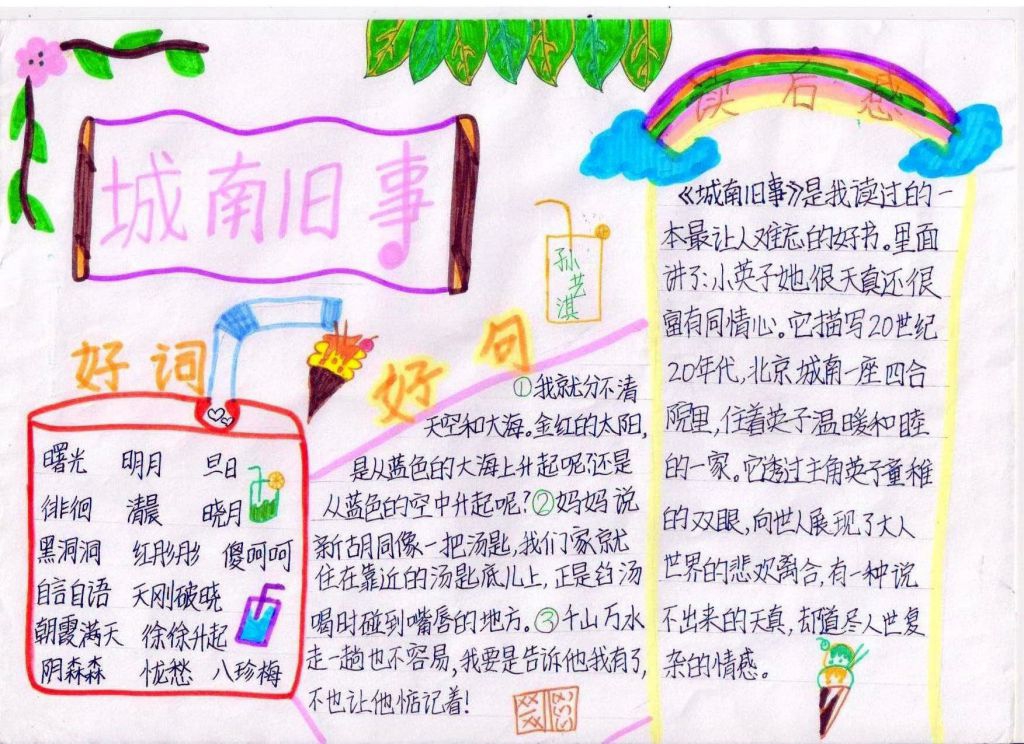 城南旧事
好词
曙光 明月 旦日
徘徊 清晨 晓月
黑洞洞 红彤彤 傻呵呵
自言自语 天刚破晓
朝霞满天 徐徐升起
阴森森 忧愁 八珍梅
孙艺淇
好句
①我就分不清
天空和大海。金红的太阳,
是从蓝色的大海上升起呢?还是
从蓝色的空中升起呢?②妈妈说
新胡同像一把汤匙,我们家就
住在靠近的汤匙底儿上,正是舀汤
喝时碰到嘴唇的地方。③千山万水
走一趟也不容易,我要是告诉他我有了,
不也让他惦记着!
读后感
《城南旧事》是我读过的一
本最让人难忘的好书。里面
讲了:小英子她很天真还很
富有同情心。它描写20世纪
20年代,北京城南一座四合
院里,住着英子温暖和睦
的一家。它透过主角英子童稚
的双眼,向世人展现了大人
世界的悲欢离合,有一种说
不出来的天真,却道尽人世复
杂的情感。